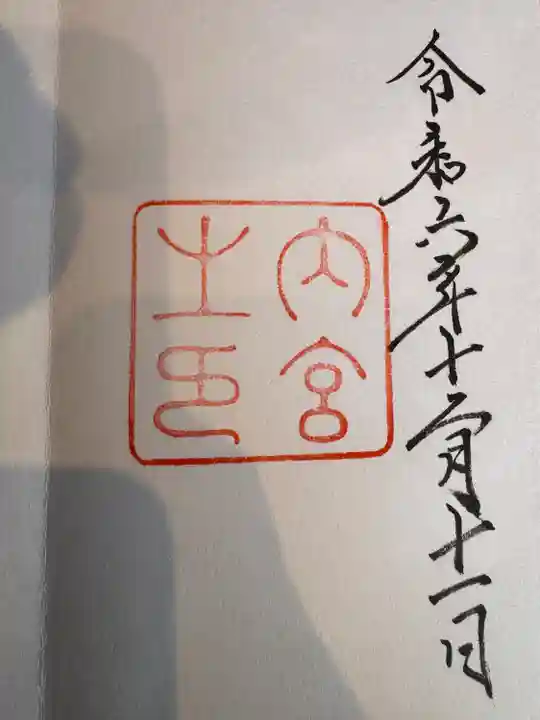 令和六年十二月十一日
内宮
之印